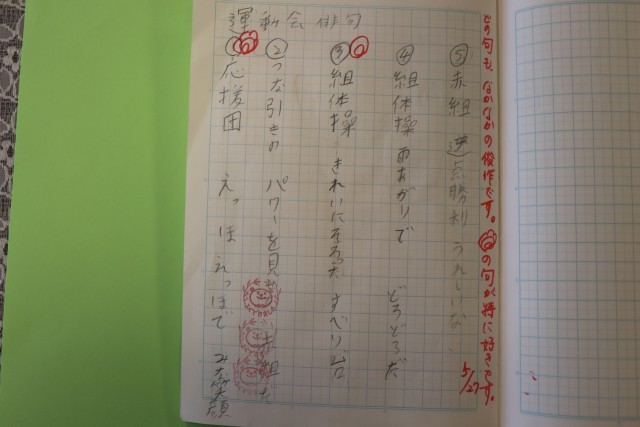 運動会俳句
① 応援団 えっほ えっほで みな笑顔
② つな引きの パワーを見 赤組だ
③ 組体操 きれいにそろった すべり台
④ 組体操 雨あがりで どろどろだ
⑤ 赤組 逆点勝利 うれしいな
どの句も、なかなかの傑作です。の句が特に好きです。
5/27